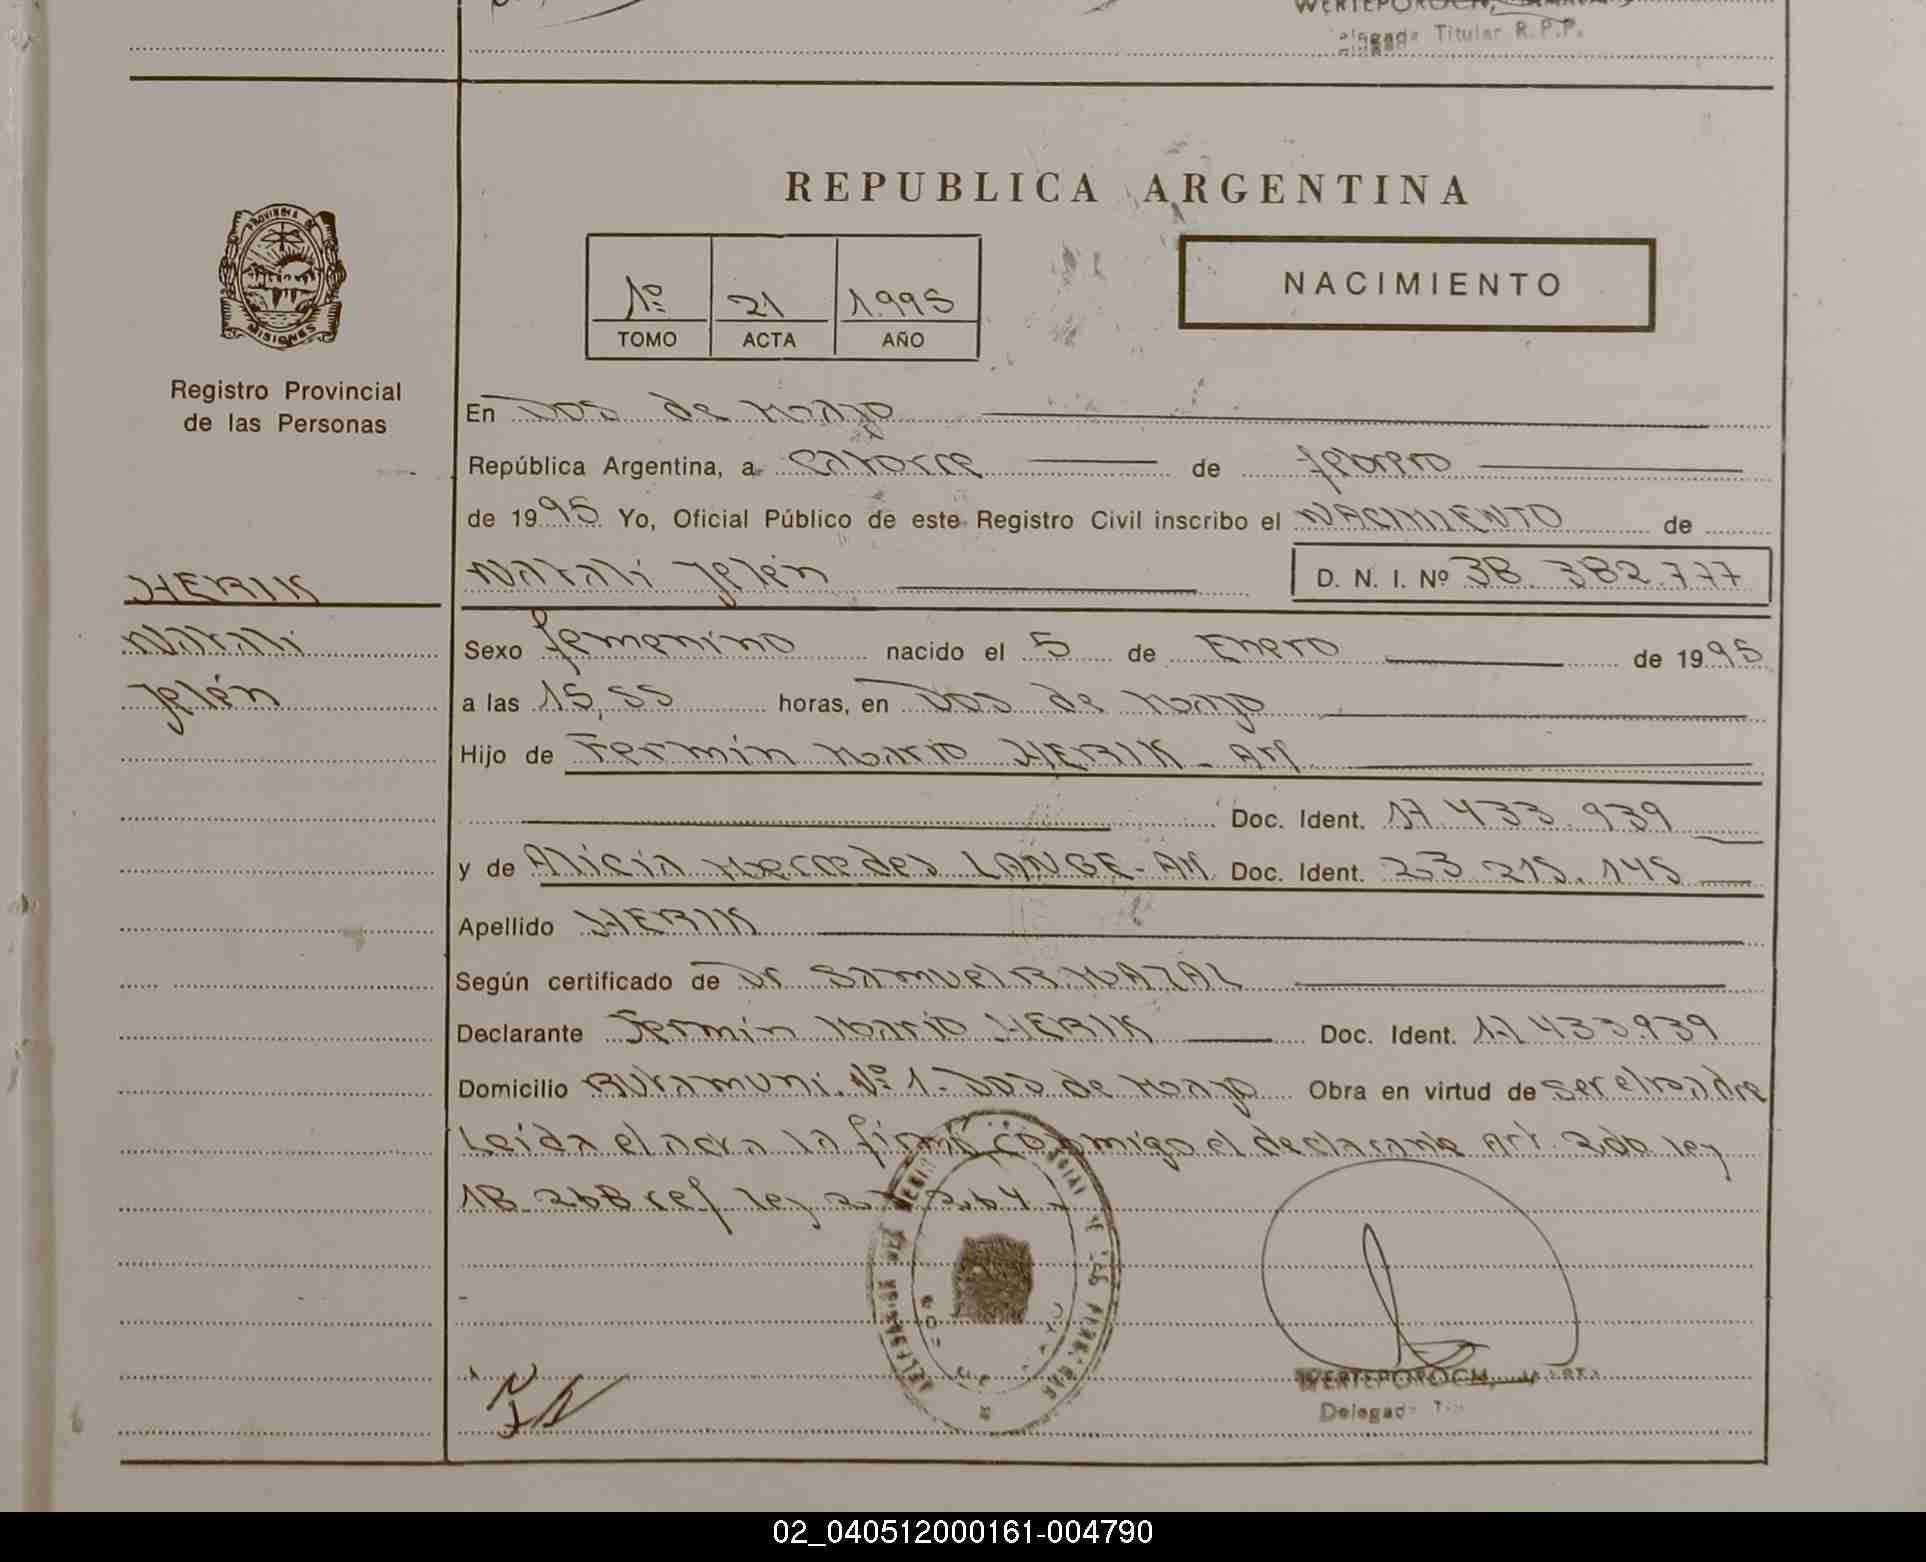 WERTEPOROCH,
Delegada Titular R.P.P.
REPUBLICA ARGENTINA
PROVINCIA DE
MISIONES
Registro Provincial
de las Personas
1º 21 1.995
TOMO ACTA AÑO
NACIMIENTO
En Dos de Mayo
República Argentina, a catorce de febrero
de 1995 Yo, Oficial Público de este Registro Civil inscribo el NACIMIENTO de
HERIK
Natali Yelén D. N. I. Nº 38.382.777
Natali
Yelén
Sexo femenino nacido el 5 de Enero de 1995
a las 15,55 horas, en Dos de Mayo
Hijo de Fermín Mario HERIK - Ar
Doc. Ident. 17.433.939
y de Alicia Mercedes LANGE - Ar Doc. Ident. 23.215.145
Apellido HERIK
Según certificado de Dr Samuel R. NAZAL
Declarante Fermín Mario HERIK Doc. Ident. 17.433.939
Domicilio Aut. muni. Nº 1 - Dos de Mayo Obra en virtud de ser el padre
Leída el acta la firma conmigo el declarante Art. 2do ley
18.268 ref ley
WERTEPOROCH, MARTA
Delegada Tit
02_040512000161-004790